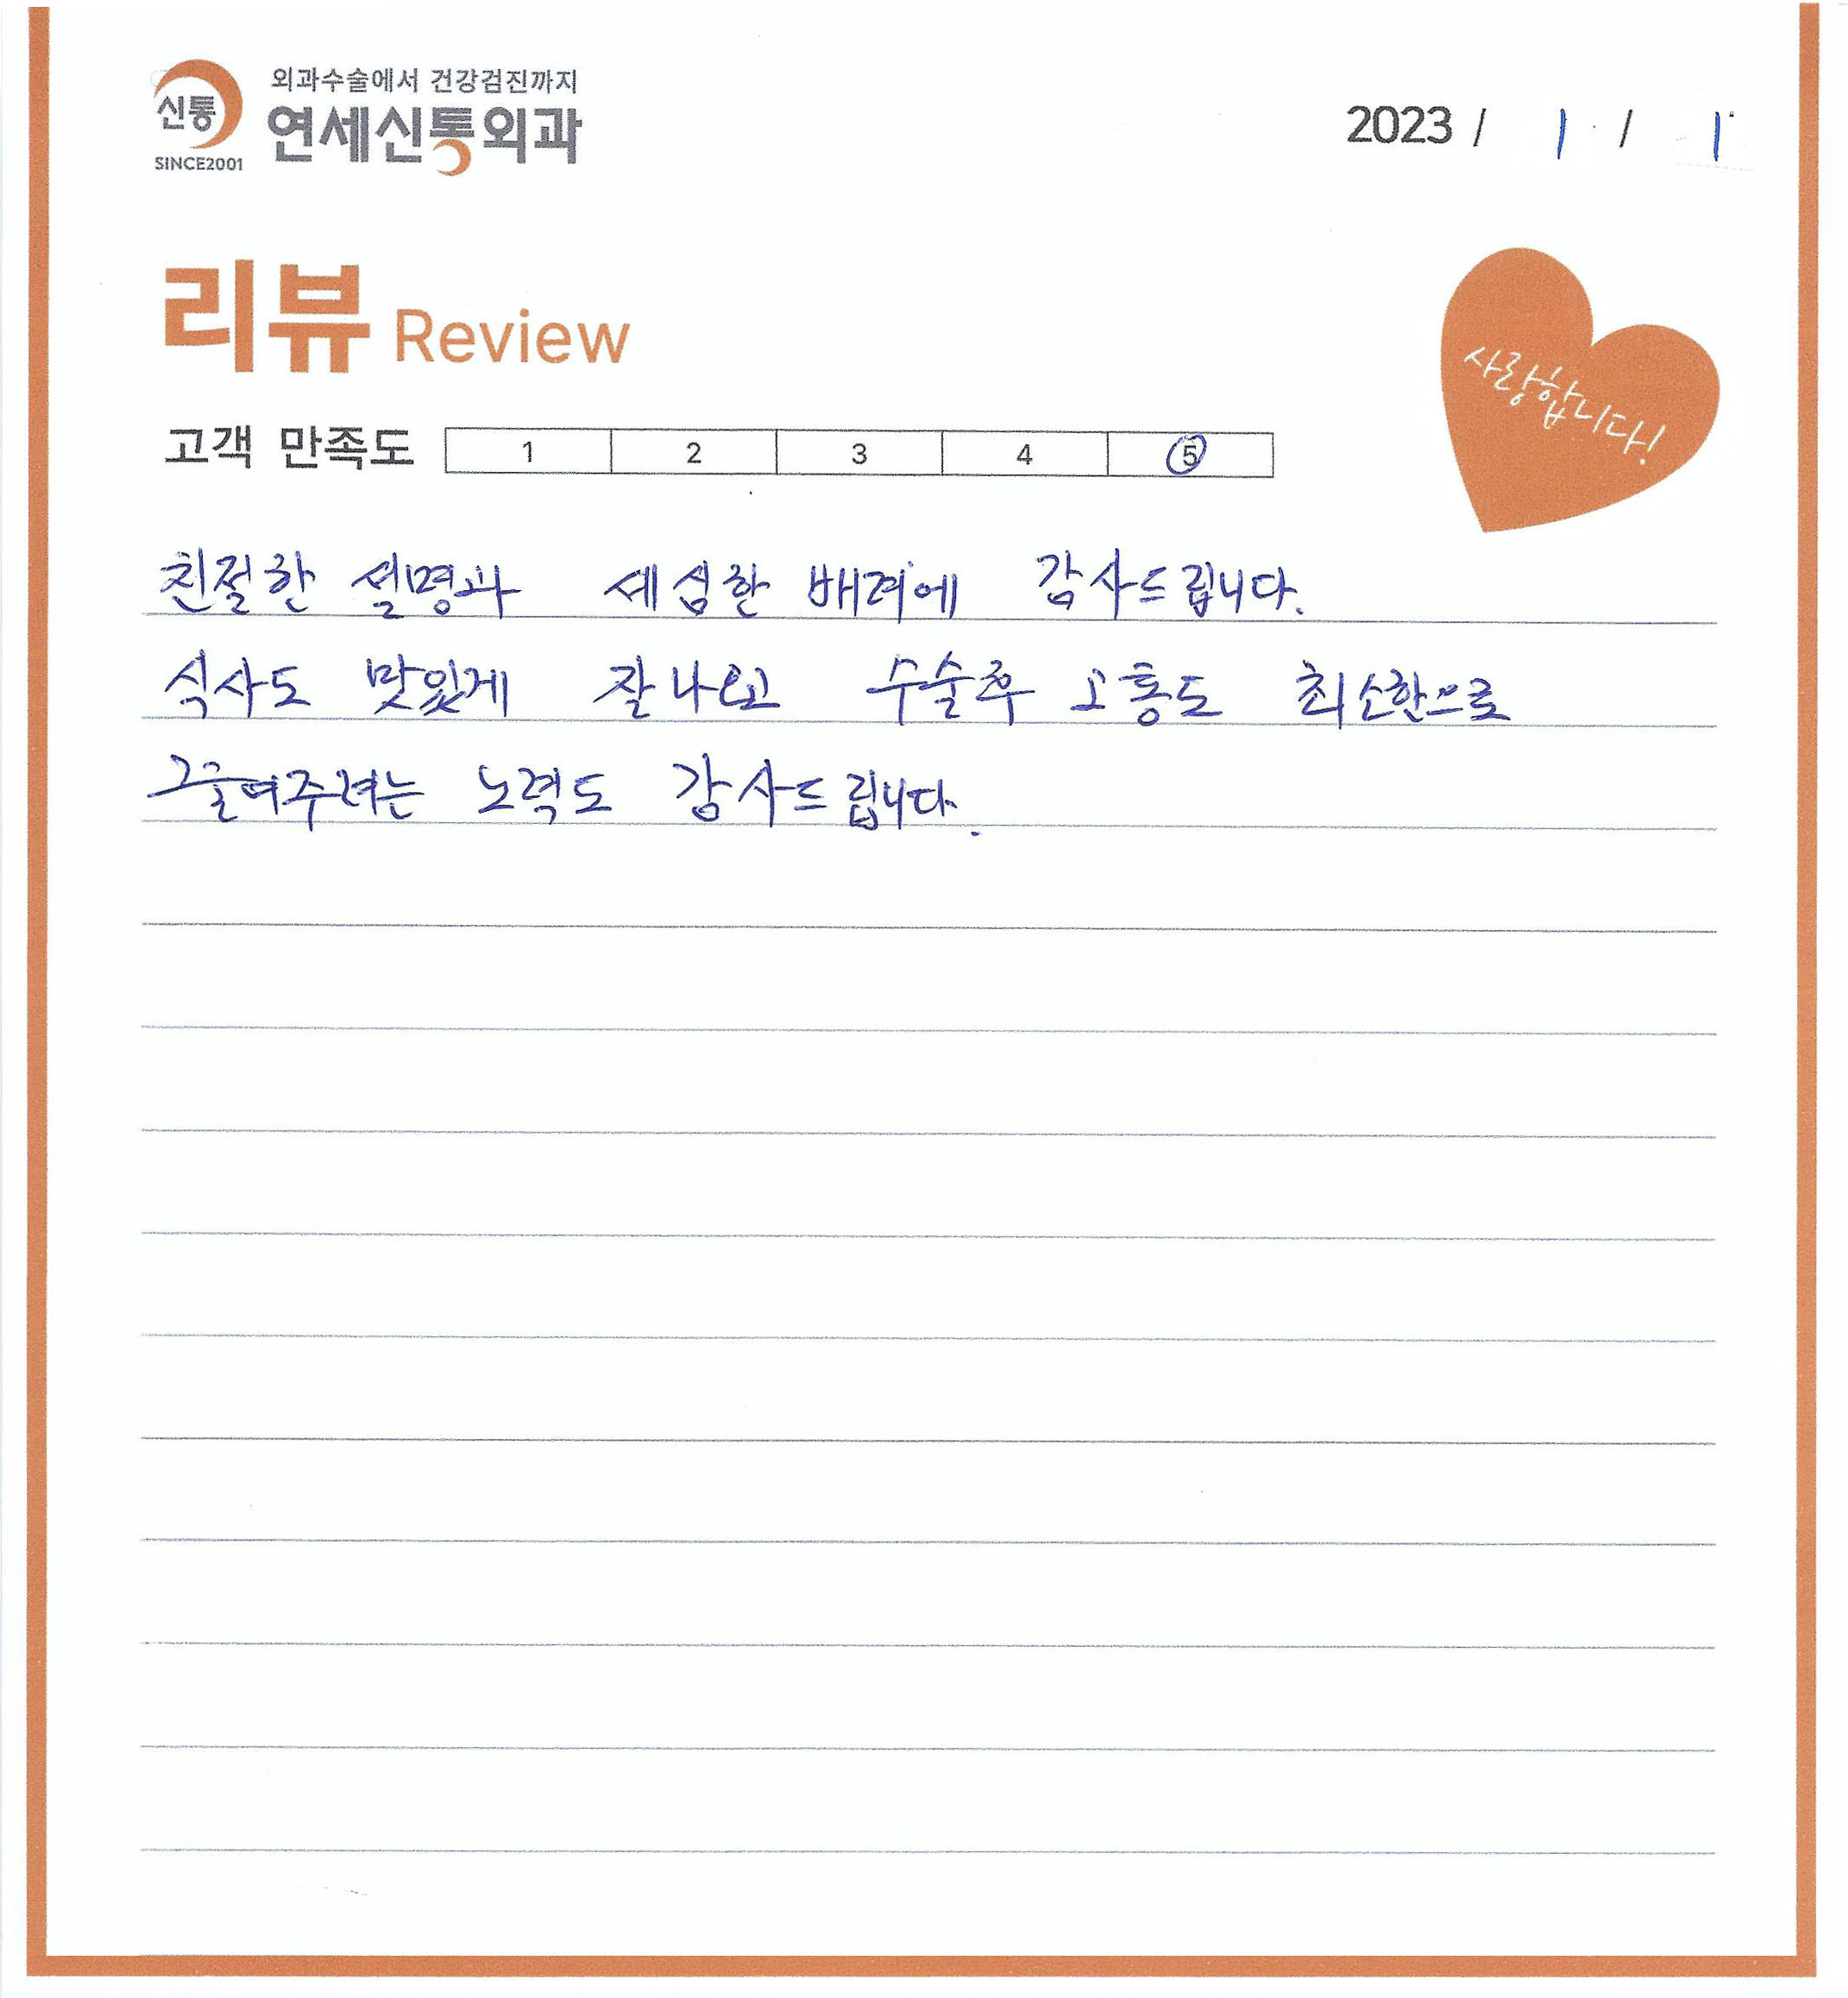 신통
SINCE2001
외과수술에서 건강검진까지
연세신통외과
2023 / 1 / 1
리뷰 Review
사랑합니다!
고객 만족도 1 2 3 4 5
친절한 설명과 세심한 배려에 감사드립니다.
식사도 맛있게 잘나오고 수술후 고통도 최소한으로
줄여주려는 노력도 감사드립니다.